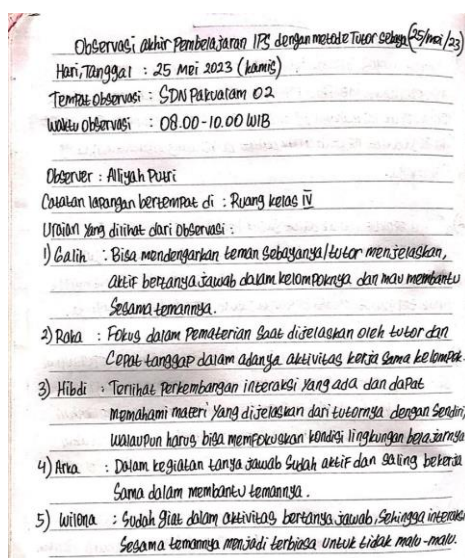 Observasi akhir Pembelajaran IPS dengan metode Tutor sebaya (25/mei/23)
Hari, Tanggal : 25 Mei 2023 (kamis)
Tempat observasi : SDN Pakualam 02
Waktu Observasi : 08.00 - 10.00 WIB
Observer : Alliyah Putri
Catatan lapangan bertempat di : Ruang kelas IV
Uraian yang dilihat dari Observasi :
1) Galih : Bisa mendengarkan teman sebayanya/tutor menjelaskan,
aktif bertanya jawab dalam kelompoknya dan mau membantu
Sesama temannya.
2) Raha : Fokus dalam Pematerian Saat dijelaskan oleh tutor dan
Cepat tanggap dalam adanya aktivitas kerja sama kelompok.
3) Hibdi : Terlihat Perkembangan interaksi yang ada dan dapat
memahami materi yang dijelaskan dari tutornya dengan Sendiri,
walaupun harus bisa memfokuskan kondisi lingkungan belajarnya
4) Arka : Dalam kegiatan tanya jawab Sudah aktif dan saling bekerja
Sama dalam membantu temannya.
5) Wilona : Sudah Giat dalam aktivitas bertanya jawab, Sehingga interaksi
Sesama temannya menjadi terbiasa untuk tidak malu-malu.